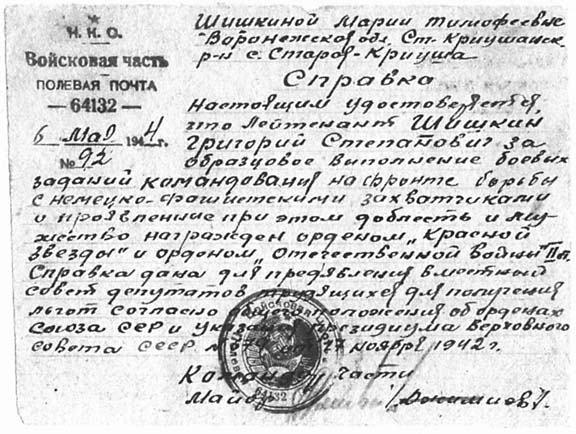 Н.К.О.
Войсковая часть
ПОЛЕВАЯ ПОЧТА
— 64132 —
6 мая 1944 г.
№ 92
Шишкиной Марии Тимофеевне
Воронежской обл. Ст.-Криушанск.
р-н с. Старая-Криуша
Справка
Настоящим удостоверяется
что Лейтенант Шишкин
Григорий Степанович за
образцовое выполнение боевых
заданий командования на фронте борьбы
с немецко-фашистскими захватчиками
и проявленные при этом доблесть и му-
жество награжден орденом „Красной
звезды" и орденом „Отечественной войны" II ст.
Справка дана для предявления в местный
совет депутатов трудящихся для получения
льгот согласно положения об орденах
Союза ССР и Указания Президиума Верховного
совета СССР ноября 1942 г.
Командир части
Майор
64132